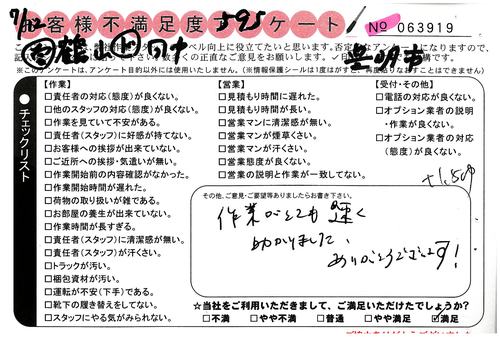 7/12 お客様不満足度 595 ケート No 063919
※このアンケートは、アンケート目的以外には使用いたしません。(※情報保護シールは1度はがすと、再度貼りなおすことはできません)
チェックリスト
【作業】
□責任者の対応(態度)が良くない。
□他のスタッフの対応(態度)が良くない。
□作業を見ていて不安がある。
□責任者(スタッフ)に好感が持てない。
□お客様への挨拶が出来ていない。
□ご近所への挨拶・気遣いが無い。
□作業開始前の内容確認がなかった。
□作業開始時間が遅れた。
□荷物の取り扱いが雑である。
□お部屋の養生が出来ていない。
□作業時間が長すぎる。
□責任者(スタッフ)に清潔感が無い。
□責任者(スタッフ)が汗くさい。
□トラックが汚い。
□梱包資材が汚い。
□運転が不安(下手)である。
□靴下の履き替えをしてない。
□スタッフにやる気がみられない。
【営業】
□見積もり時間に遅れた。
□見積もり時間が長い。
□営業マンに清潔感が無い。
□営業マンが煙草くさい。
□営業マンが汗くさい。
□営業態度が良くない。
□営業の説明と作業が一致してない。
【受付・その他】
□電話の対応が良くない。
□オプション業者の説明
・作業が良くない。
□オプション業者の対応
(態度)が良くない。
その他、ご意見・ご要望等ありましたらお書き下さい。
作業がとても速く
助かりました、
ありがとうございます!
☆当社をご利用いただきまして、ご満足いただけたでしょうか?
□不満 □やや不満 □普通 □やや満足 ☑満足